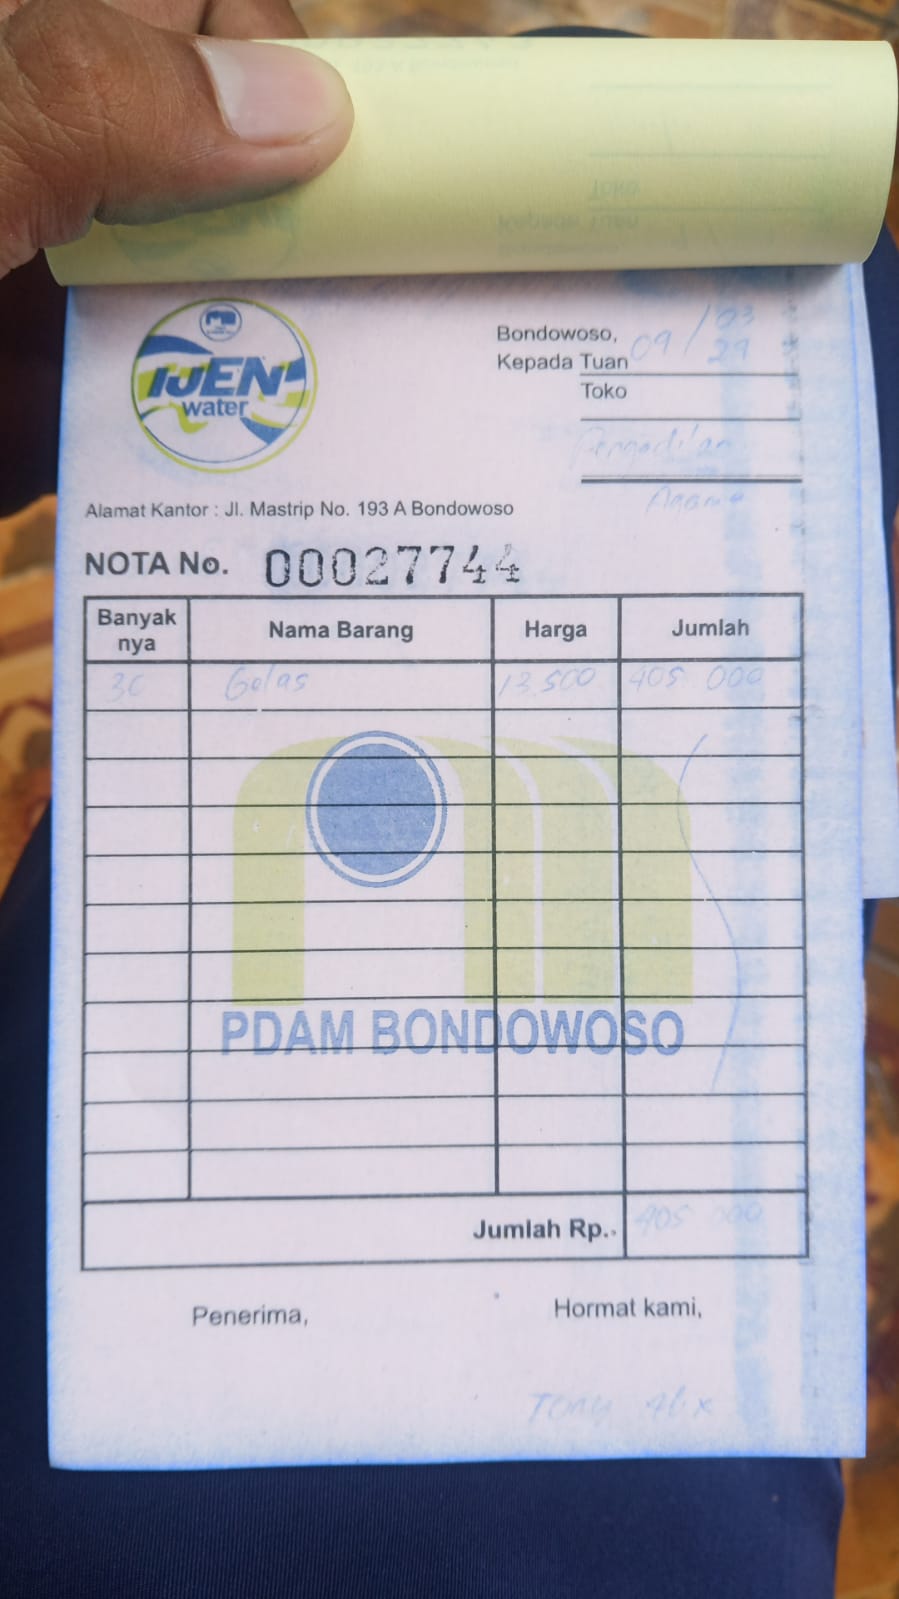 IJEN
water
Bondowoso, 09 / 03
Kepada Tuan 29
Toko
Pengadilan
Agama
Alamat Kantor : Jl. Mastrip No. 193 A Bondowoso
NOTA No. 00027744
Banyak nya Nama Barang Harga Jumlah
30 Gelas 13.500 405 000
PDAM BONDOWOSO
Jumlah Rp.. 405 000
Penerima, Hormat kami,
Tony